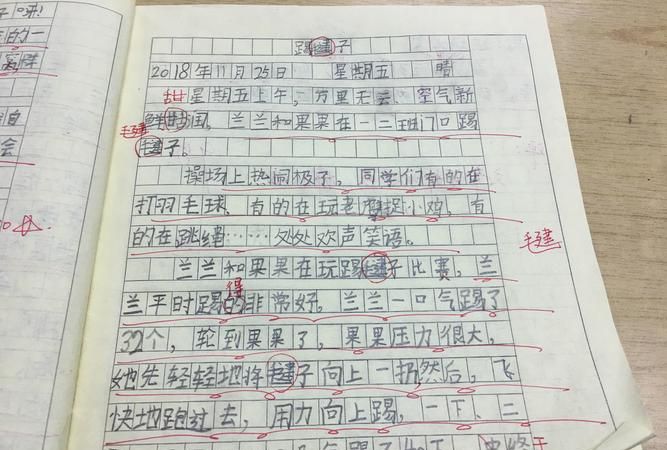 踢毽子
2018年11月25日 星期五 晴
甜星期五上午，万里无云、空气新
鲜时润，兰兰和果果在一二班门口踢
毽子。
操场上热闹极了，同学们有的在
打羽毛球、有的在玩老鹰捉小鸡，有
的在跳绳……处处欢声笑语。
兰兰和果果在玩踢毽子比赛，兰
兰平时踢得非常好，兰兰一口气踢了
32个，轮到果果了，果果压力很大，
她先轻轻地将毽子向上一扔然后，飞
快地跑过去，用力向上踢，一下、二
毽
毽